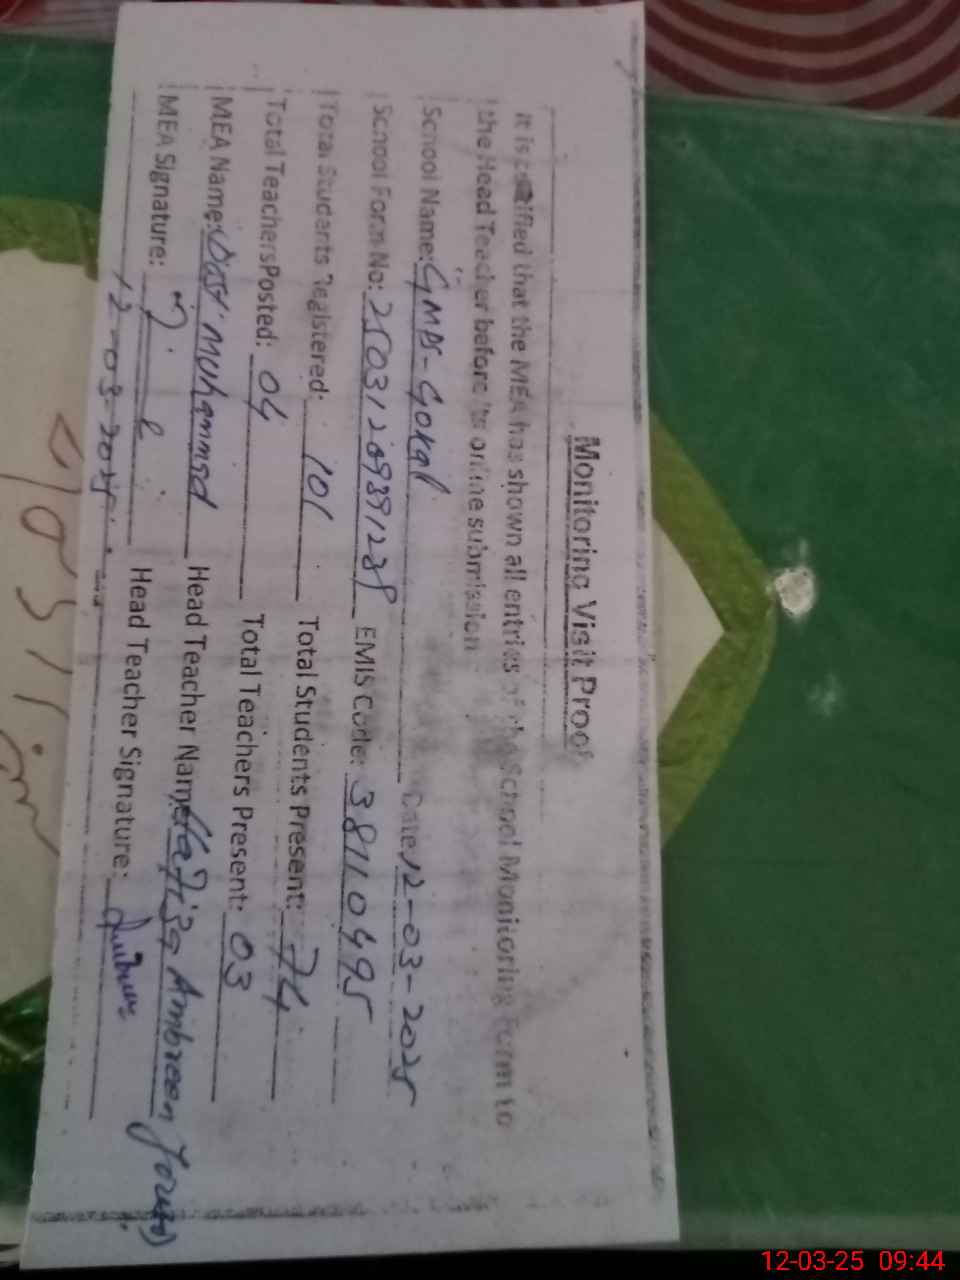 Monitoring Visit Proof
It is certified that the MEA has shown all entries of the School Monitoring Form to
the Head Teacher before its online submission
School Name: GMPS-Gokal Date: 12-03-2025
School Form No: EMIS Code: 38110495
Total Students Registered: 101 Total Students Present: 74
Total Teachers Posted: 04 Total Teachers Present: 03
MEA Name: Muhammad Head Teacher Name: Ambreen
MEA Signature: Head Teacher Signature:
12-03-2025
12-03-25 09:44